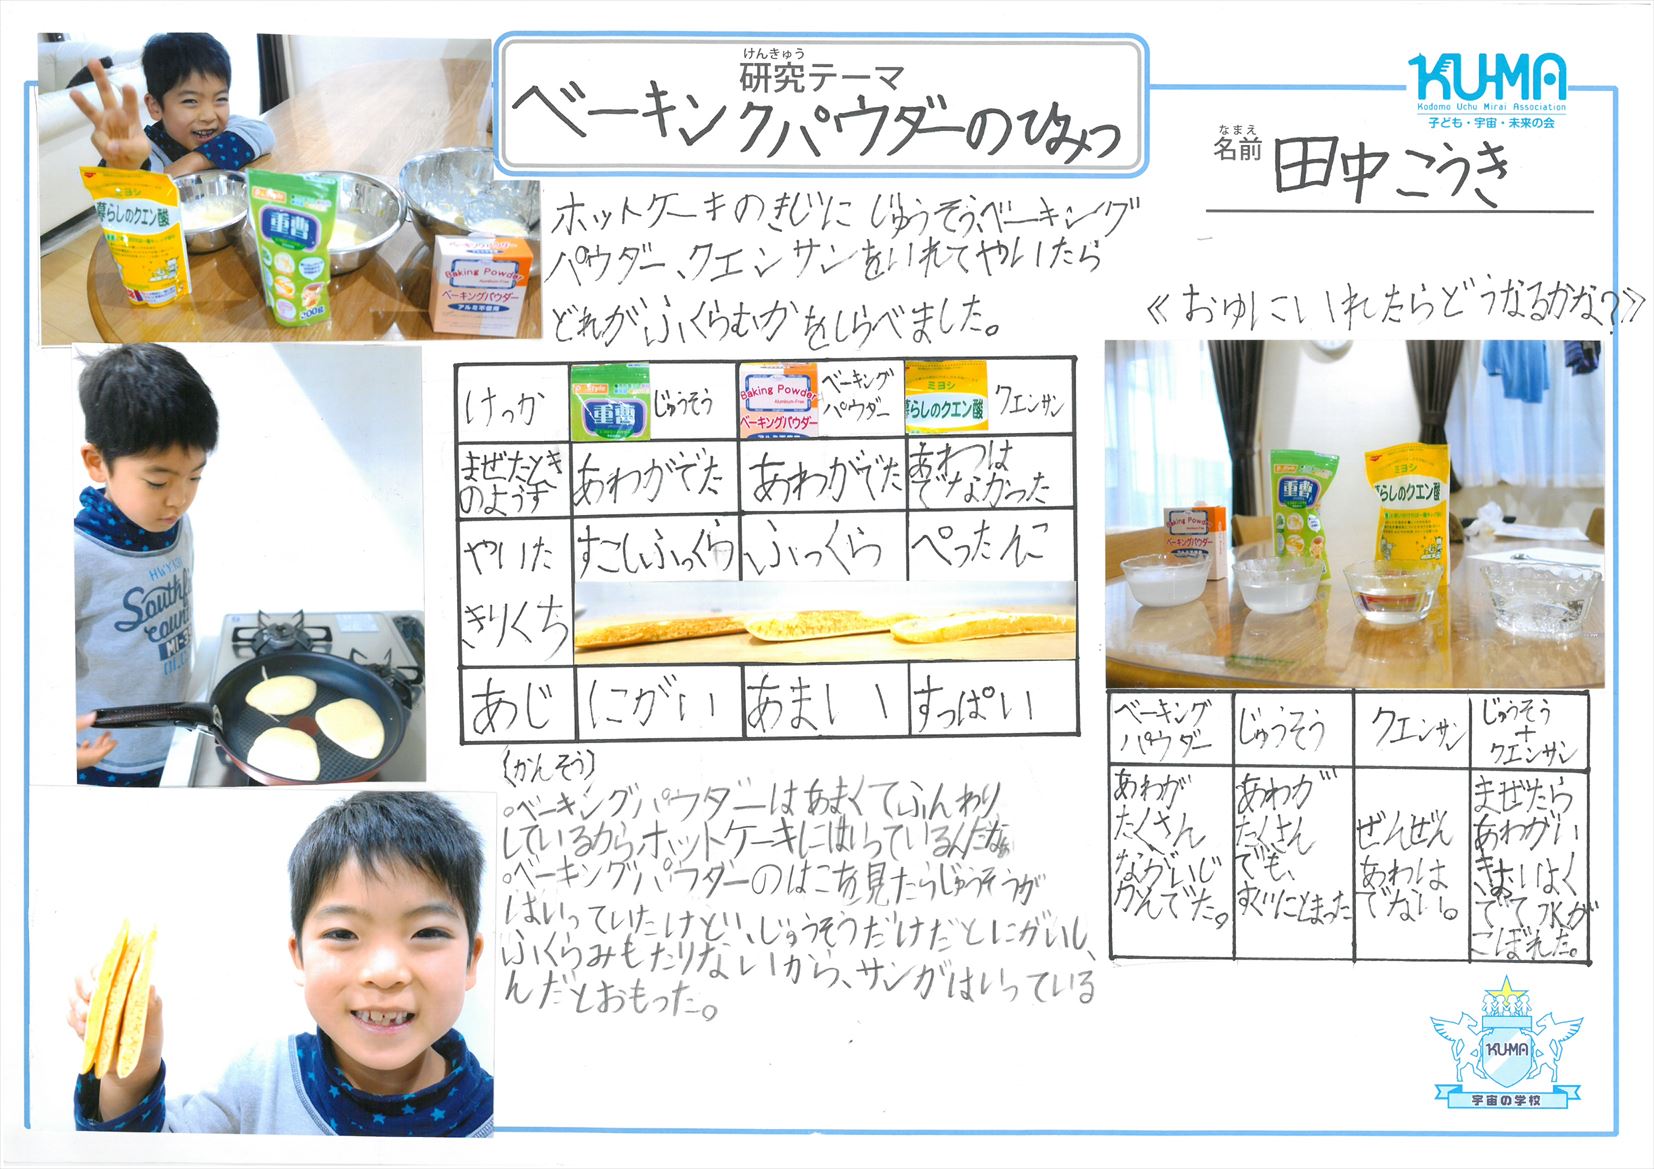 けんきゅう
研究テーマ
ベーキングパウダーのひみつ
KU-MA
Kodomo Uchu Mirai Association
子ども・宇宙・未来の会
なまえ
名前 田中こうき
ホットケーキのきじに じゅうそう、ベーキング
パウダー、クエンサンをいれてやいたら
どれがふくらむかをしらべました。
ミヨシ
暮らしのクエン酸
重曹
Baking Powder
Aluminum-Free
ベーキングパウダー
アルミ不使用
けっか
重曹
じゅうそう
Baking Powder
Aluminum-Free
ベーキングパウダー
ベーキング
パウダー
ミヨシ
暮らしのクエン酸
クエンサン
まぜたとき
のようす
あわがでた
あわがでた
あわつは
でなかった
やいた
きりくち
すこしふっくら
ふっくら
ぺったんこ
あじ
にがい
あまいい
すっぱい
(かんそう)
○ベーキングパウダーはあまくてふんわり
しているからホットケーキにはいっているんだなぁ
○ベーキングパウダーのはこを見たらじゅうそうが
はいっていたけどい、じゅうそうだけだとにがいし、
ふくらみもたりないから、サンがはいっている
んだとおもった。
≪おゆにいれたらどうなるかな?≫
Baking Powder
ベーキングパウダー
重曹
ミヨシ
暮らしのクエン酸
ベーキング
パウダー
じゅうそう
クエンサン
じゅうそう
+
クエンサン
あわが
たくさん
ながいじ
かんでた。
あわが
たくさん
でも、
すぐにとまった
ぜんぜん
あわは
でない。
まぜたら
あわがい
きおいよく
でて水が
こぼれた。
KU-MA
宇宙の学校